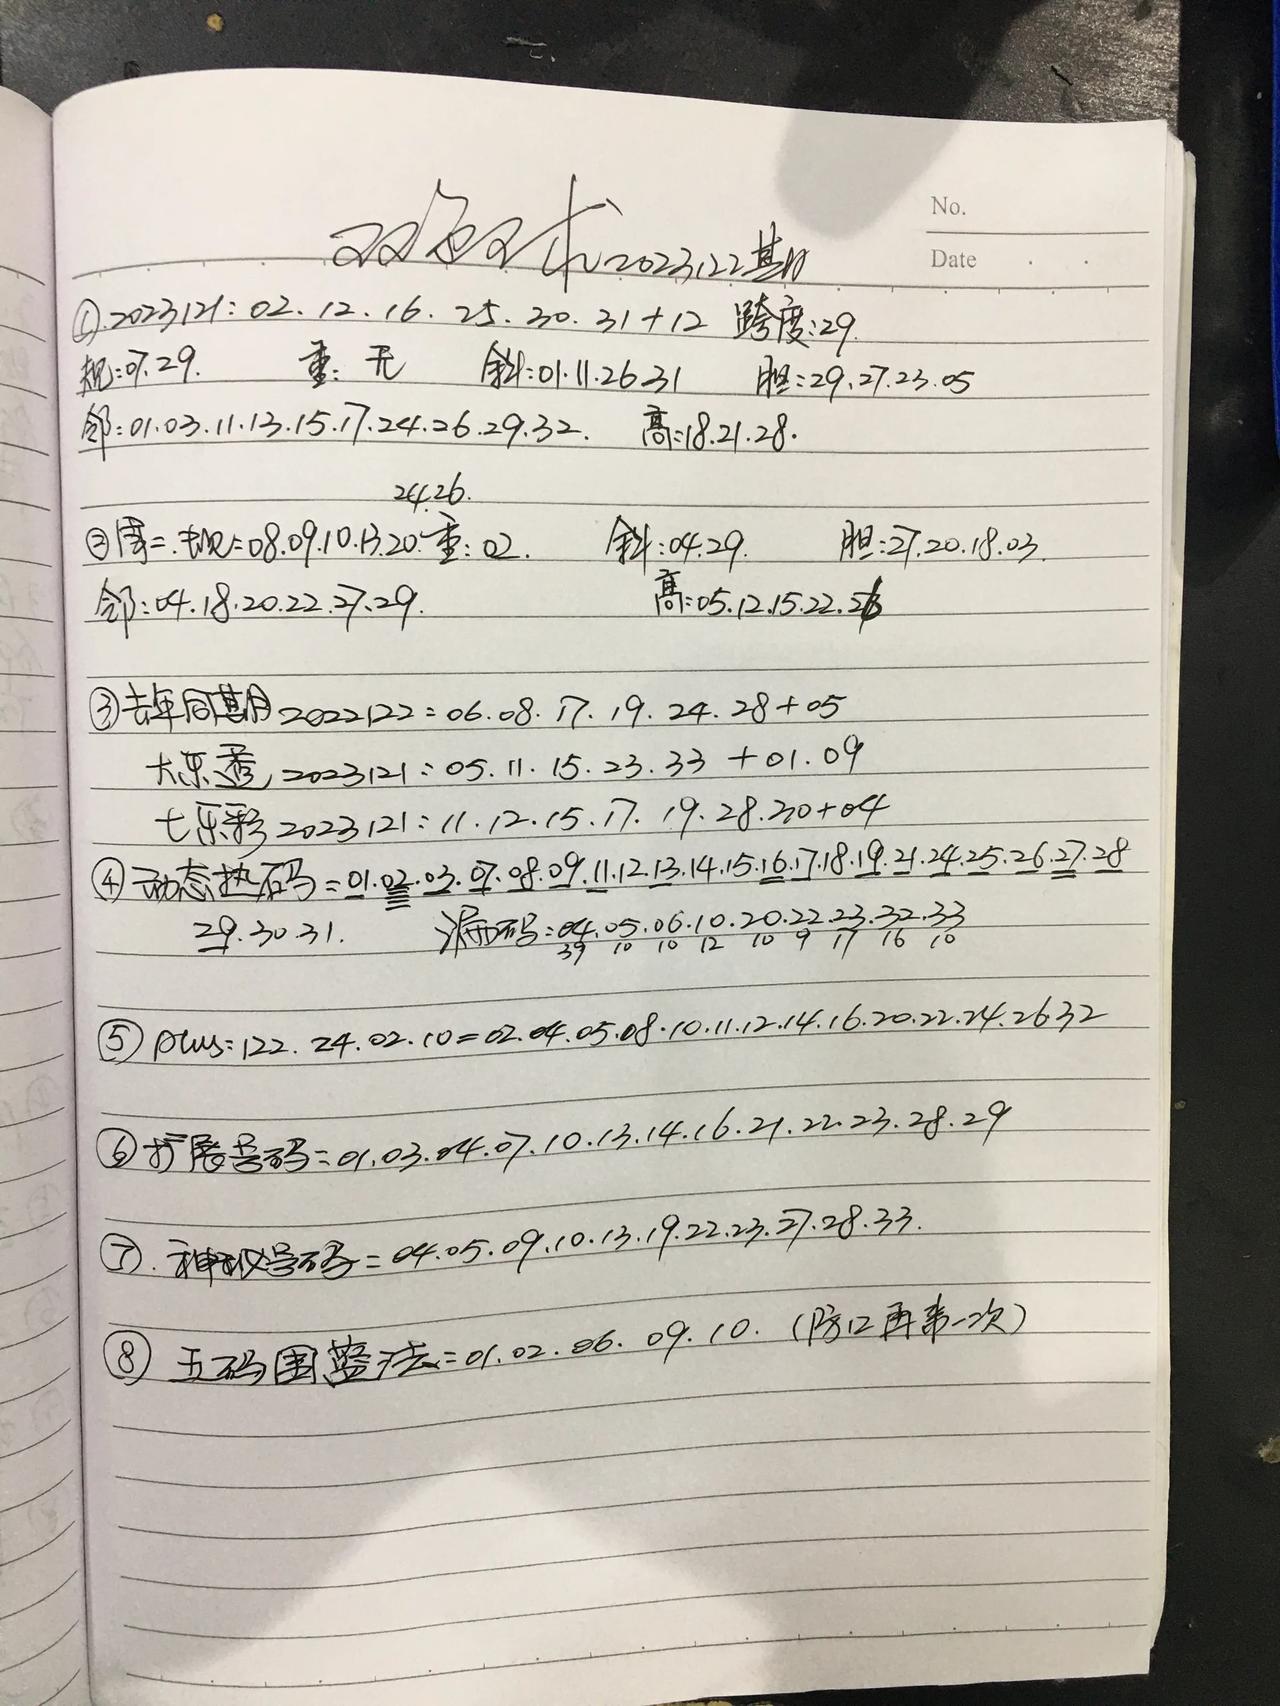 No.
Date
双色球 2023122期
①.2023121:02.12.16.25.30.31+12 跨度:29.
规:07.29. 重:无 斜:01.11.26.31 胆:29.27.23.05
邻:01.03.11.13.15.17.24.26.29.32. 高:18.21.28.
24.26.
②周二.规=08.09.10.13.20.重:02. 斜:04.29. 胆:27.20.18.03.
邻:04.18.20.22.27.29. 高:05.12.15.22.26
③去年同期2022122=06.08.17.19.24.28+05
大乐透2023121:05.11.15.23.33+01.09
七乐彩2023121:11.12.15.17.19.28.30+04
④动态热码=01.02.03.07.08.09.11.12.13.14.15.16.17.18.19.21.24.25.26.27.28
29.30.31. 漏码:04.05.06.10.20.22.23.32.33
39 10 10 12 10 9 17 16 10
⑤plus:122.24.02.10=02.04.05.08.10.11.12.14.16.20.22.24.26.32
⑥扩展号码=01.03.04.07.10.13.14.16.21.22.23.28.29
⑦.神秘号码=04.05.09.10.13.19.22.23.27.28.33.
⑧五码围蓝法=01.02.06.09.10.(防12再来一次)